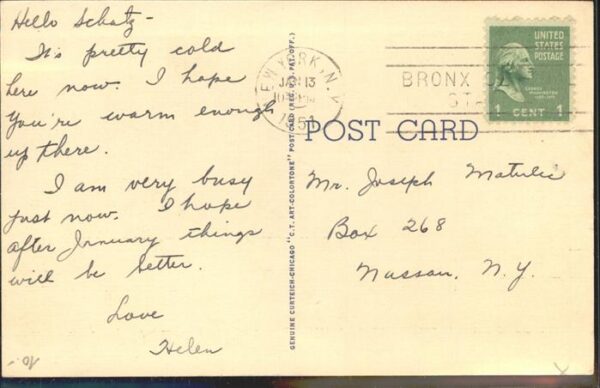 Hello Schatz -
It's pretty cold
here now. I hope
You're warm enough
up there.
I am very busy
just now. I hope
after January things
will be better.
Love
Helen
10.-
GENUINE CURTEICH-CHICAGO "C.T. ART-COLORTONE" POST CARD (REG. U.S. PAT. OFF.)
NEW YORK, N.Y.
JAN 13
BRONX
UNITED
STATES
POSTAGE
GEORGE
WASHINGTON
1 CENT 1
POST CARD
Mr. Joseph Matulic
Box 268
Nassau, N.Y.